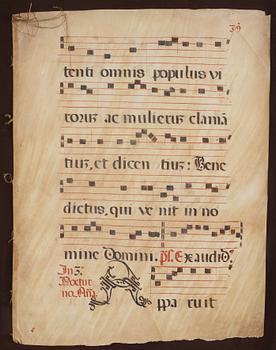 tenti omnis populus vi
torus ac mulierus clamā
tius, et dicen tius: Bene
dictus, qui ve nit in no
mine Domini. ps. Exaudid.
In 3.
Noctur
no. Añᵃ.
A ppa ru it